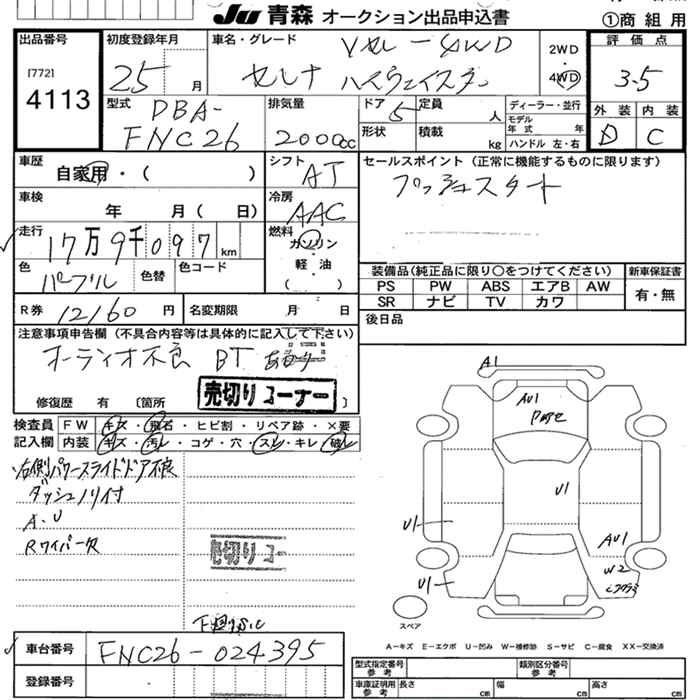 JU 青森 オークション出品申込書
①商組用
出品番号
[772]
4113
初度登録年月
25 月
車名・グレード
Vセレ-4WD
セレナ ハイウェイスター
2WD
・
4WD
評価点
3.5
外装 内装
D C
型式
DBA-
FNC26
排気量
2000cc
ドア 5
定員 人
形状
積載 kg
ディーラー・並行
モデル
年式 年
ハンドル 左・右
車歴
自家用・( )
シフト
AT
車検
年 月( 日)
冷房
AAC
走行
17万9千097km
燃料
ガソリン
・
軽油
( )
色
パープル
色替
色コード
R券 12160 円
名変期限 月 日
セールスポイント(正常に機能するものに限ります)
プッシュスタート
装備品(純正品に限り○をつけてください)
新車保証書
PS PW ABS エアB AW
SR ナビ TV カワ
有・無
後日品
注意事項申告欄(不具合内容等は具体的に記入して下さい)
オーディオ不良 BT あがり
修復歴 有 [箇所 ]
売切りコーナー
検査員
記入欄
FW キズ・飛石・ヒビ割・リペア跡・×要
内装 キズ・汚レ・コゲ・穴・スレ・キレ・破レ
右側パワースライドドア不良
ダッシュノリ付
A.U
Rワイパー欠
売切りコー
下廻りサビ
A1
AU1
U1
AU1
U1
W2
U1
スペア
A-キズ E-エクボ U-凹み W-補修跡 S-サビ C-腐食 XX-交換済
車台番号
FNC26-024395
登録番号
型式指定番号
参考
類別区分番号
参考
車庫証明用
参考
長さ cm
幅 cm
高さ cm